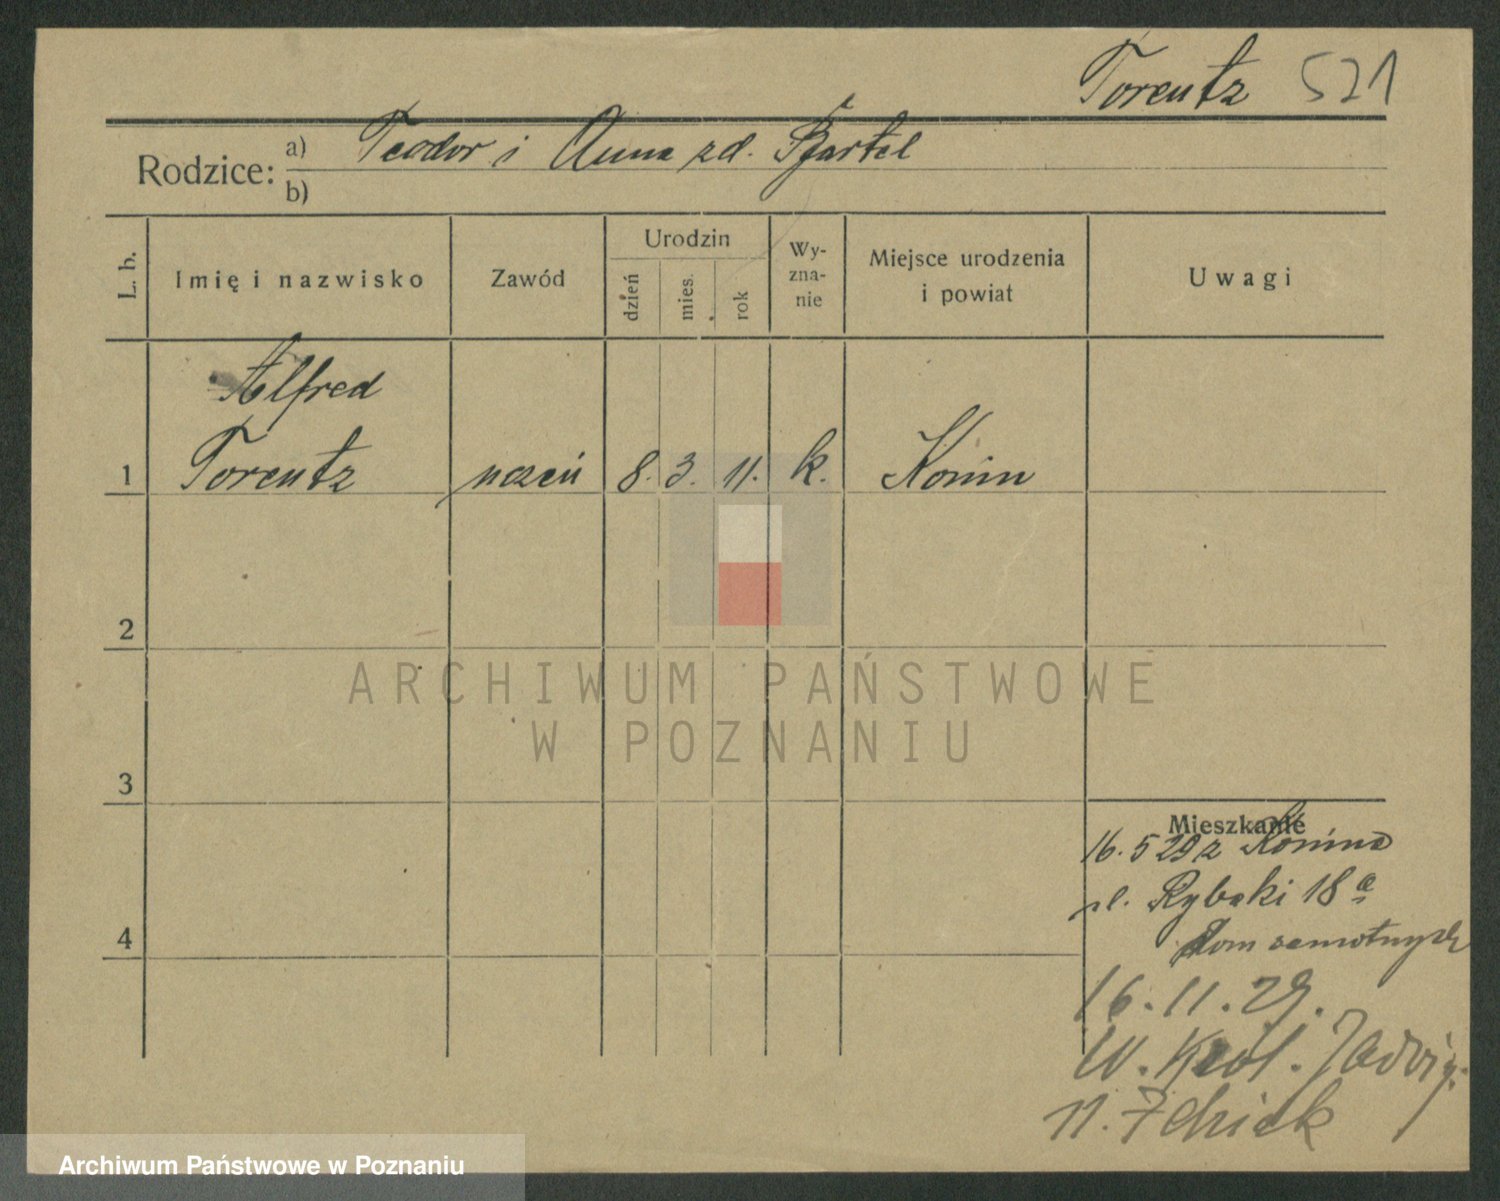 Torentz 521
Rodzice: a) Teodor i Anna zd. Bartel
b)
L. b. Imię i nazwisko Zawód Urodzin dzień mies. rok Wy-zna-nie Miejsce urodzenia i powiat Uwagi
Alfred
1 Torentz uczeń 8. 3. 11. k. Konin
2
3
4
Mieszkanie
16.5 29 z Konina
ul. Rybaki 18a
Dom samotnych
16.11.29.
W. Król. Jadwigi
11.
ARCHIWUM PAŃSTWOWE
W POZNANIU
Archiwum Państwowe w Poznaniu